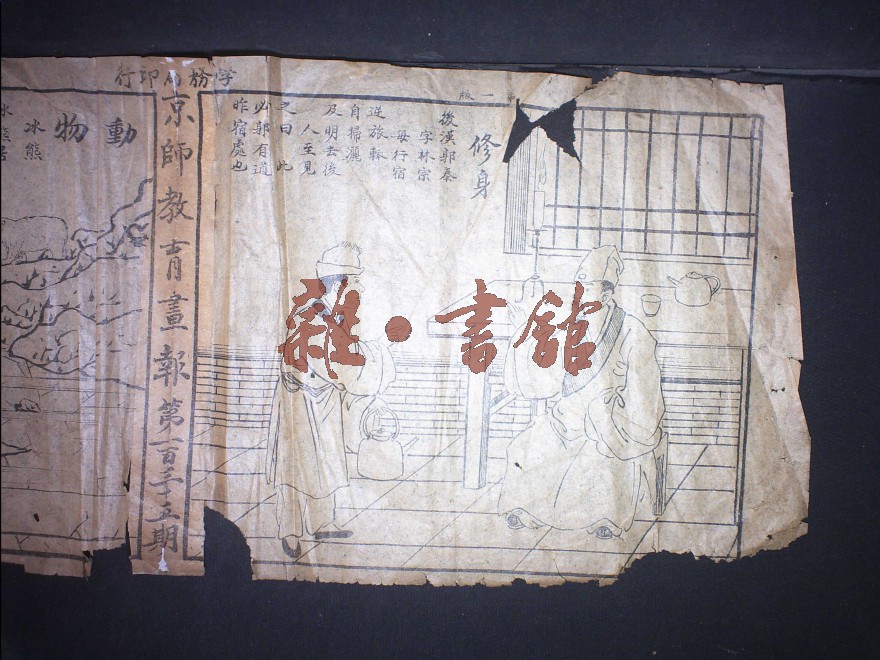 学務局印行
一版
修身
後漢郭泰
字林宗
每行宿
逆旅輒
自掃灑
及明去後
人至見
之曰此
必郭有道
昨宿處也
京師教育畫報第一百三十五期
動物
冰熊
雜·書館